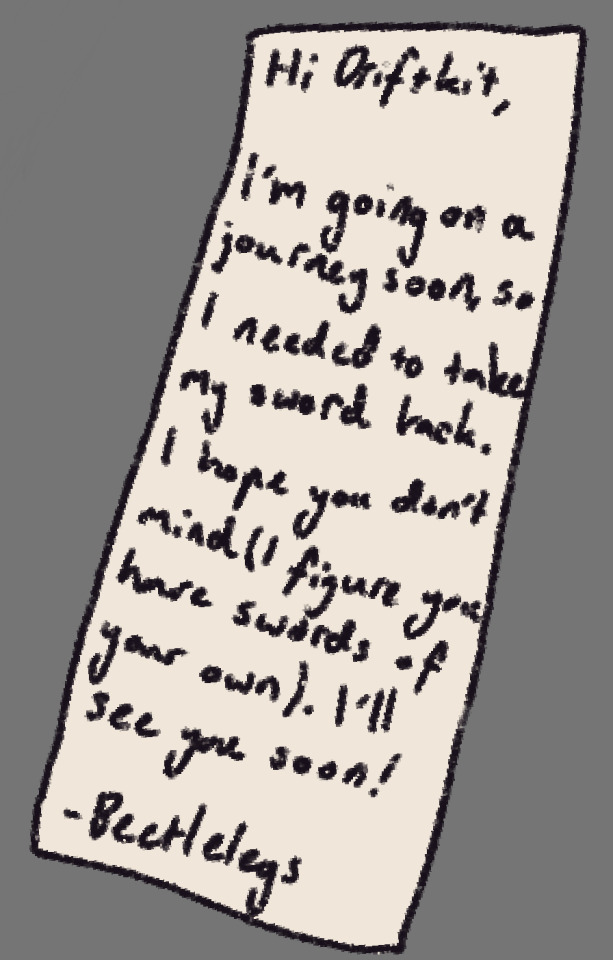 Hi Driftkit,
I'm going on a
journey soon, so
I needed to take
my sword back.
I hope you don't
mind (I figure you
have swords of
your own). I'll
see you soon!
-Beetlelegs